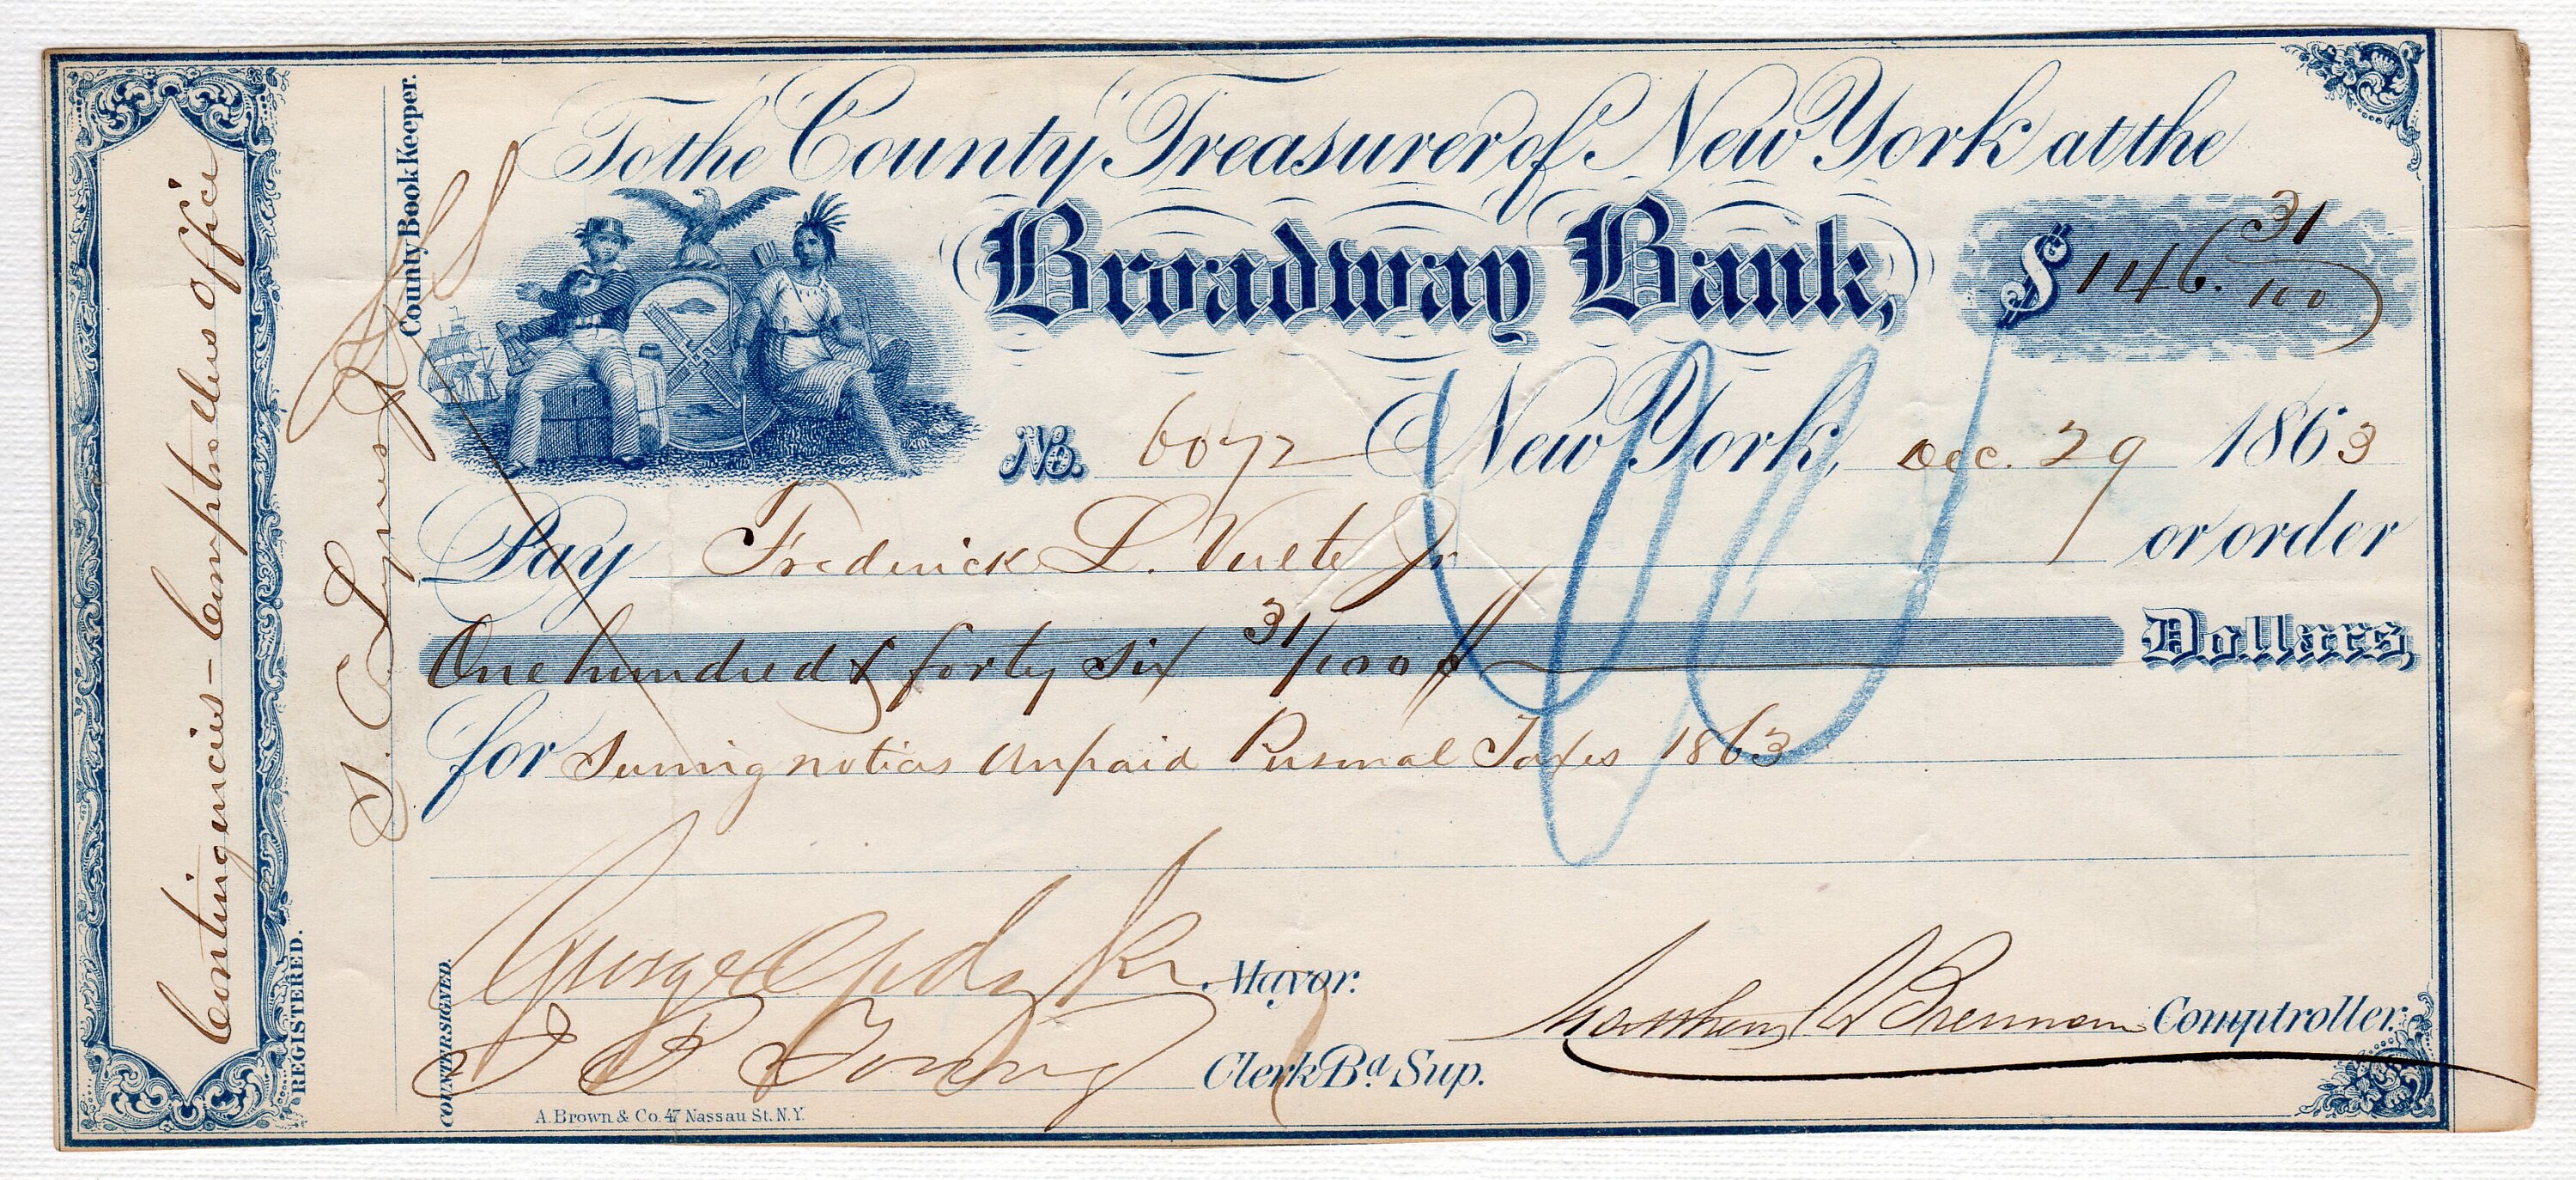 To the County Treasurer of New York at the
Broadway Bank,
$ 146. 31/100
No. 6072 New York, Dec. 29 1863
Pay Frederick L. Vulte Jr or order
One hundred & forty six 31/100 Dollars,
for Serving notices Unpaid Personal Taxes 1863
George Opdyke Mayor.
Matthew T Brennan Comptroller.
COUNTERSIGNED.
J B Young Clerk Bd. Sup.
A. Brown & Co. 47 Nassau St. N.Y.
Contingencies - Comptrollers office
REGISTERED.
County Book Keeper.